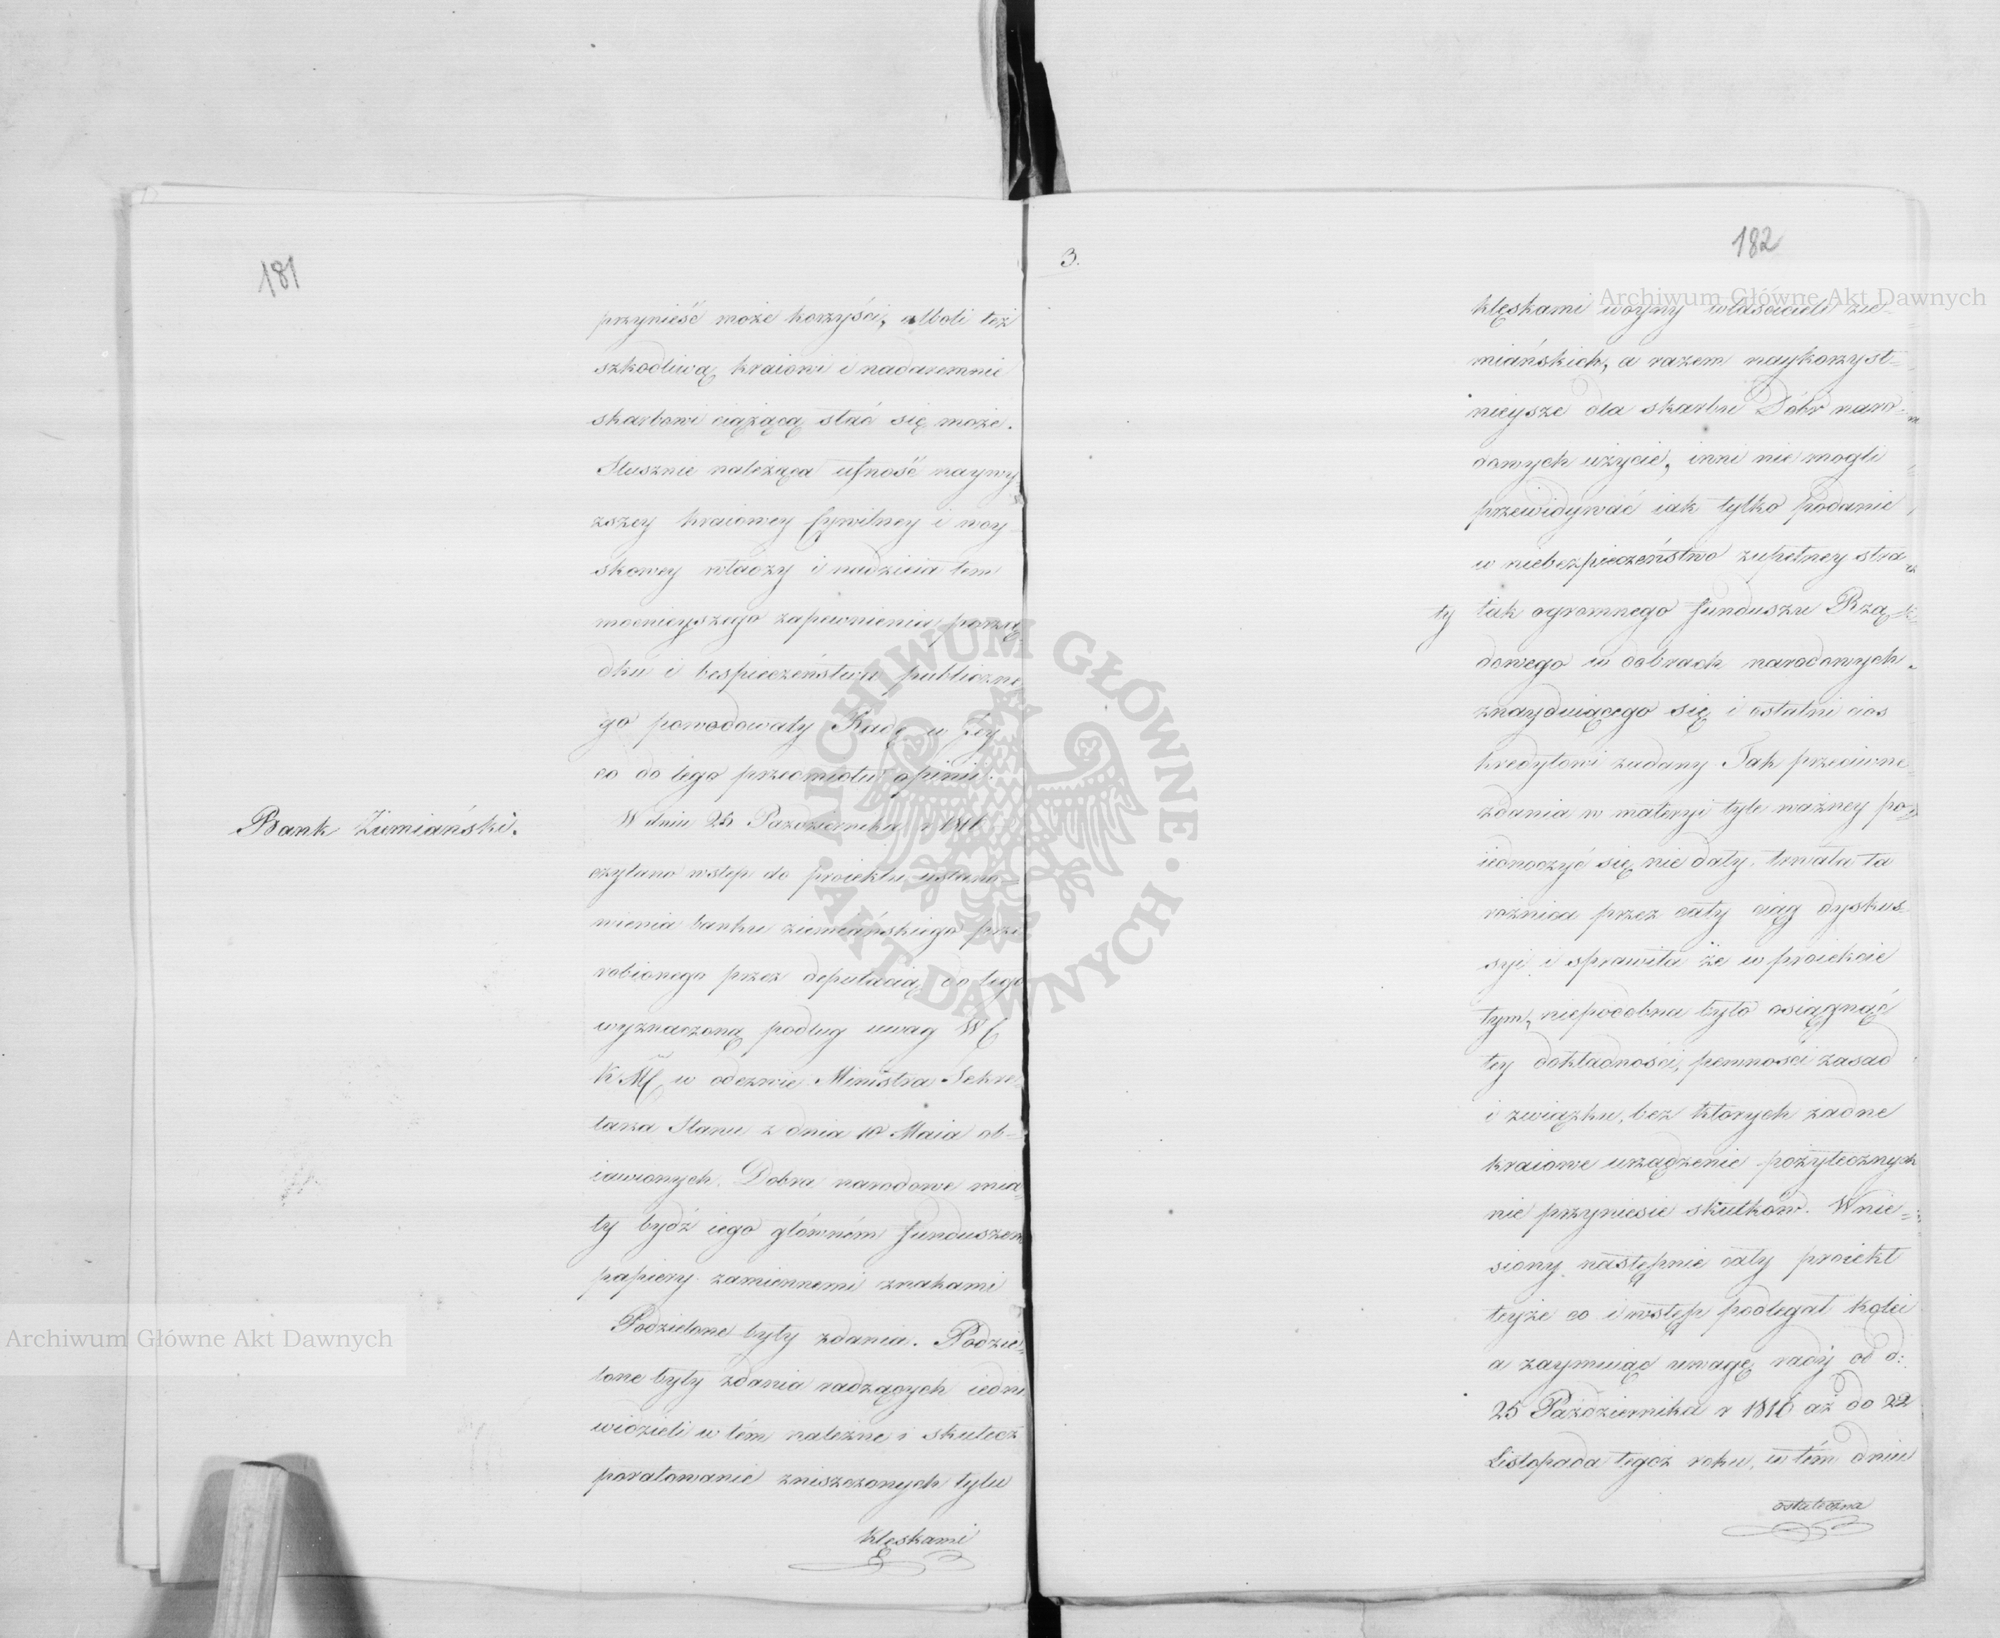 181
przynieść może korzyści, alboli też
szkodliwą kraiowi i nadaremnie
skarbowi ciążącą stać się może.
Słusznie należąca ufność naywy
zszey kraiowey Cywilney i woy-
skowey władzy i nadzieia tem
mocnieyszego zapewnienia porzą
dku i bespieczeństwa publiczne
go powodowały Radę w Jey
co do tego przedmiotu opinii.
Bank Ziemiański.
W dniu 25 Października r 1816
czytano wstęp do proiektu ustano-
wienia banku ziemiańskiego prze
robionego przez deputacią do tego
wyznaczoną podług uwag WC
KMC w odezwie Ministra Sekre
tarza Stanu z dnia 10 Maia ob-
iawionych. Dobra narodowe mia-
ły bydź iego głównem funduszem
papiery zamiennemi znakami
Podzielone były zdania. Podzie-
lone były zdania radzących iedni
widzieli w tém należne i skutecz
poratowanie zniszczonych tylu
klęskami
3.
182
klęskami woyny właścicieli zie-
miańskich, a razem naykorzyst-
nieysze dla skarbu Dóbr naro-
dowych użycie, inni nie mogli
przewidywać iak tylko podanie
w niebezpieczeństwo zupełney stra
ty tak ogromnego funduszu Rzą
dowego w dobrach narodowych
znayduiącego się i ostatni cios
kredytowi zadany. Tak przeciwne
zdania w materyi tyle ważney po
iednoczyć się nie dały, trwała ta
różnica przez cały ciąg dyskus-
syi i sprawiła że w proiekcie
tym, niepodobna było osiągnąć
tey dokładności, pewności zasad
i związku, bez których żadne
kraiowe urządzenie pożytecznych
nie przyniesie skutków. Wnie-
siony następnie cały proiekt
teyże co i wstęp podlegał kolei
a zaymuiąc uwagę rady od d:
25 Października r 1816 aż do 22
Listopada tegoż roku, w tém dniu
ostateczna
Archiwum Główne Akt Dawnych
Archiwum Główne Akt Dawnych
ARCHIWUM GŁÓWNE
AKT DAWNYCH